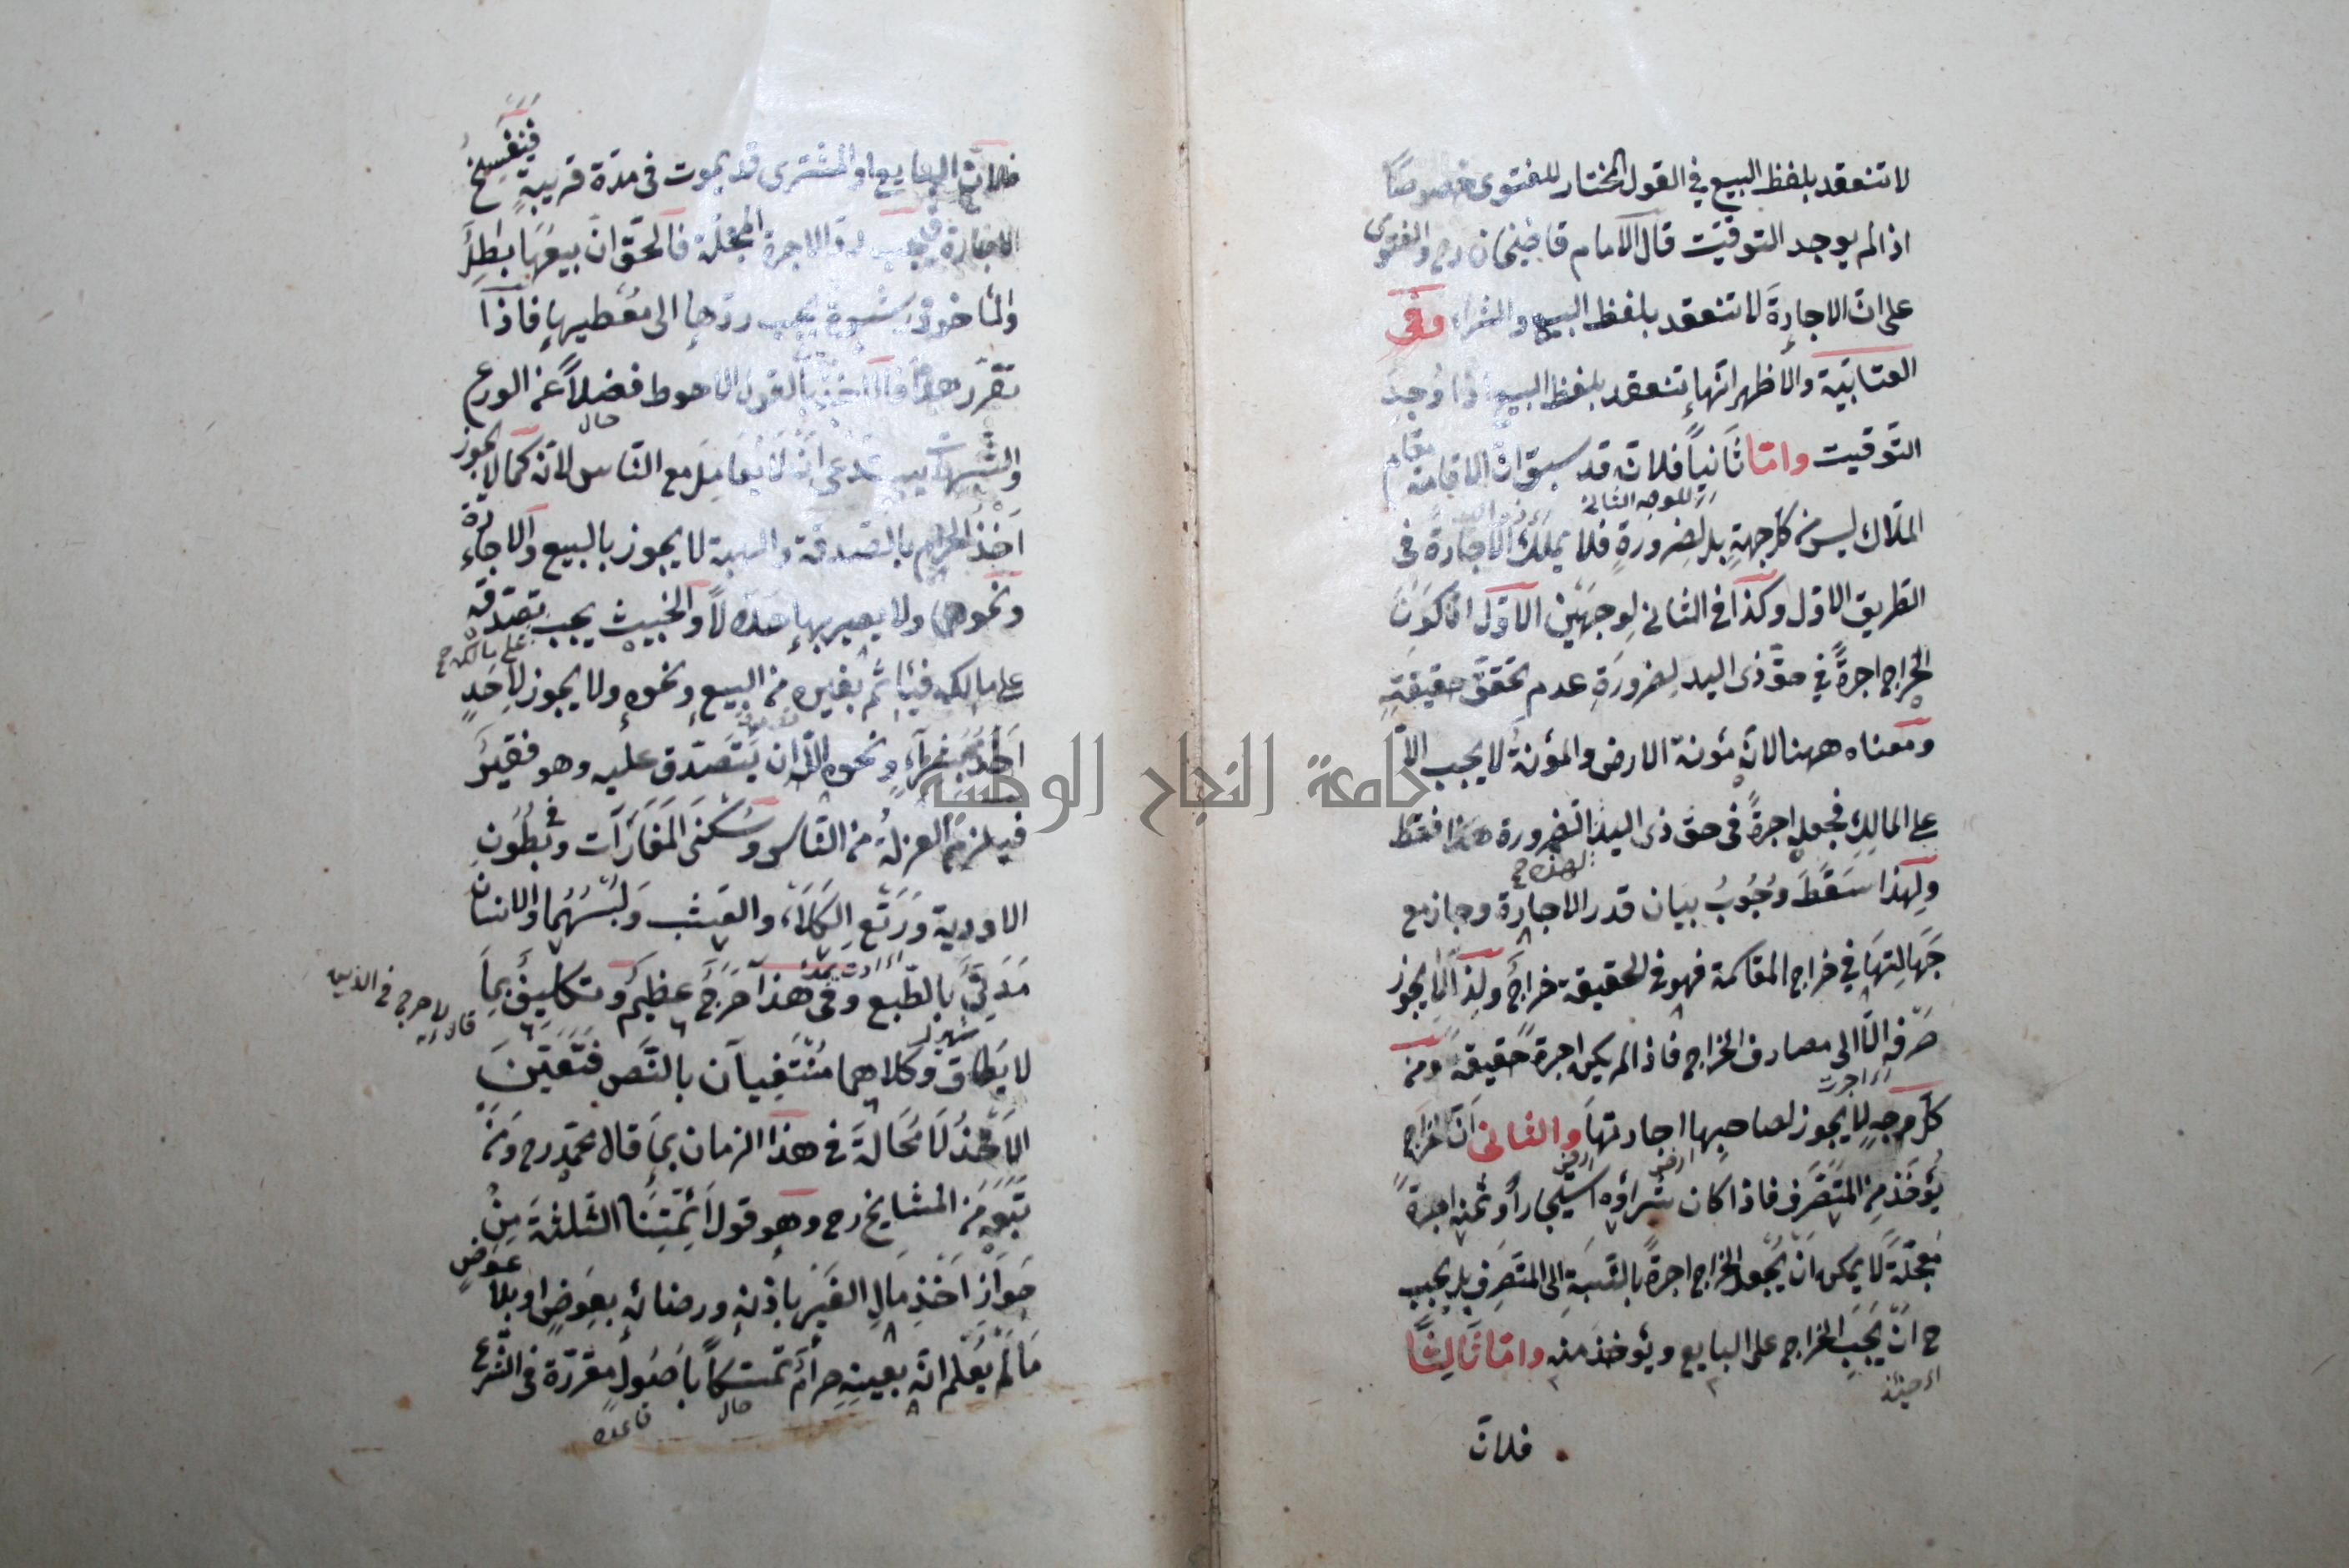 لا تنعقد بلفظ البيع في القول المختار للفتوى خصوصًا
اذا لم يوجد التوقيت قال الامام قاضيخان رح والفتوى
على انّ الاجارةَ لا تنعقد بلفظ البيع والشراء وفى
العتابيّة والأظهر انها تنعقد بلفظ البيع اذا وُجِدَ
التّوقيت وامّا ثانيًا فلانّه قد سبق انّ الاقامة مقام
للوجه الثانى
الملّاك ليس من كل جهةٍ بل لضرورةٍ فلا يملك الاجارة فى
الطريق الاول وكذا فى الثانى لِوجهَيْن الاوّل انّ كَوْنَ
الخراج اجرةً في حقّ ذى اليد لِضرورَةِ عدم تحقّق حقيقتِهِ
ومعناه ههنا لانّه مئونة الارض والمؤنةُ لا يجب الّا
على المالِكِ فجعل اجرةً فى حق ذى اليد لضرورة هذا فقط
لهذه ح
ولِهذا سَقَطَ وُجُوبُ بيَان قدر الاجارة وجاز مع
جَهَالتِهَا في خراج المقاسمة فهو فى الحقيقة خراجٌ ولِذا لا يجوز
صَرْفه الّا الى مصارف الخراج فاذا لم يكن اجرةً حقيقةً ومن
اجرت
كلّ وجهٍ لا يجوز لصاحبها اجارتهَا والثانى انّ الخراج
يُؤخَذ مِن المُتَصَرِّف فاذا كان شراؤه استيجارًا وثمنه اجرةً
معجّلةً لا يمكن انْ يُجعل الخراج اجرةً بالنّسبَةِ الى المتصرِّف بل يجب
ح انْ يَجِبَ الخراج على البايع ويؤخذ منه وامّا ثَالِثًا
اى حينئذ
فلانّ
فلانّ البايع او المشترى قد يموت فى مدّة قريبةٍ فينفسِخُ
الاجارة فيجب ردّ الاجرة المعجّلة فالحقّ انّ بيعَهَا بَاطِلٌ
والمأخوذ رشوة يجب ردّها الى مُعْطيها فاذا
تقرّر هذا فالاخذ بالقول الاحوط فضلًا عن الورع
حال
والشبهات يستدعى انْ لا يعَامِلَ مع النّاس لانّه كما لا يجوز
اَخْذُ الحرام بالصّدقة والهبة لا يجوز بالبيع والاجارة
ونحوها ولا يصير بها حلالًا والخبيث يجب تصدّقه
على مالكه ح
على مالكه فيأثم بغيره من البيع ونحوهِ ولا يجوز لِاَحَدٍ
اَخْذُهُ بشراءٍ ونحوه الّا ان يَتصَدّق عليه وهو فقيرٌ
فيلزم العزلةُ من النّاس وسُكنَى المَفَازَات وفى بُطُون
الاودية ورَتْع الكَلَاء والعُشب ولُبْسُهُما والانسان
مَدَنِىٌّ بالطّبع وفى هَذا حَرَجٌ عظيمٌ وتكليفٌ بِمَا
قال الله لا حرج فى الدين
لا يُطاق وكلاهما مُنْتَفِيَان بالنَّص فتَعَيّنَ
الاَخْذُ لَا مَحَالةَ فى هذا الزمان بِمَا قال محمّد رح ومَنْ
تَبِعَه مِنَ المشايخ رح وهو قول اَئِمّتِنَا الثّلثة مِنْ
جَوَازِ اَخْذِ مَالِ الغَيْرِ بِاِذنهِ ورضائهِ بعِوَضٍ او بلا عِوَضٍ
مَا لَمْ يَعْلم انّه بعينهِ حرامٌ تمسّكًا باُصُولٍ مقرّرة فى الشّرع
حال
قاعده
جامعة النجاح الوطنية